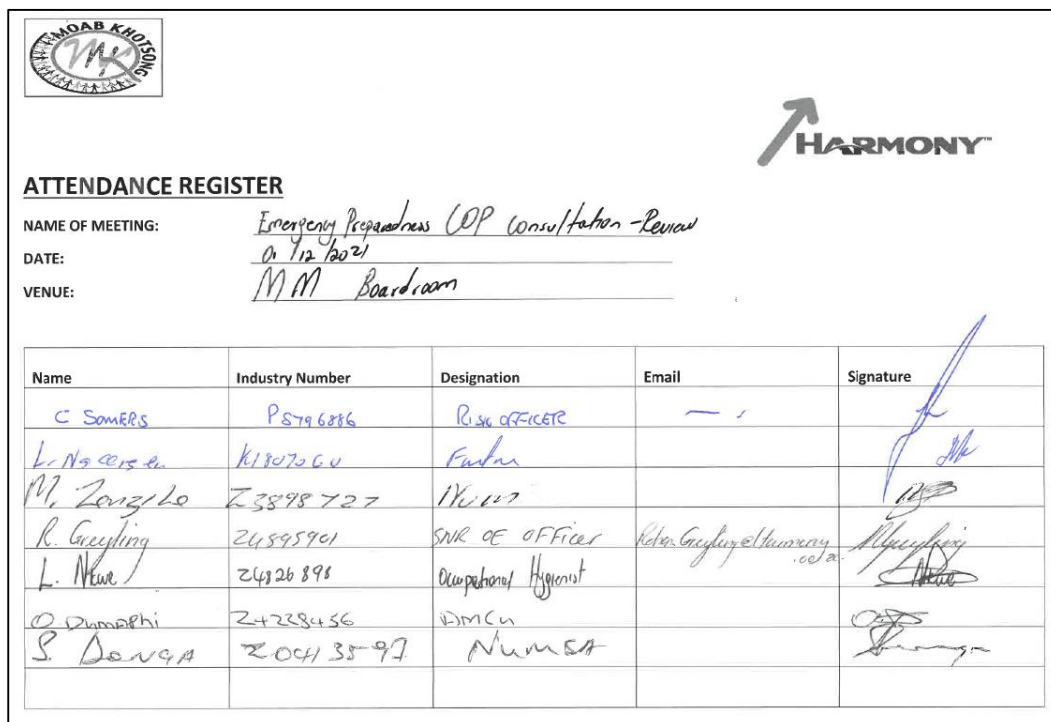 MOAB KHOTSONG
MK
HARMONY™
ATTENDANCE REGISTER
NAME OF MEETING: Emergency Preparedness COP Consultation - Review
DATE: 01/12/2021
VENUE: MM Boardroom
Name Industry Number Designation Email Signature
C SOMERS P5796886 RISK OFFICER
L.
M. Zenzile Z3898727 Num
R. Greyling 24895901 SNR OE OFFicer
L. Nkwe 24826898 Occupational Hygienist Nkwe
O Dumaphi 24228456 AMCU
S. DONGA Z0413597 NUMSA